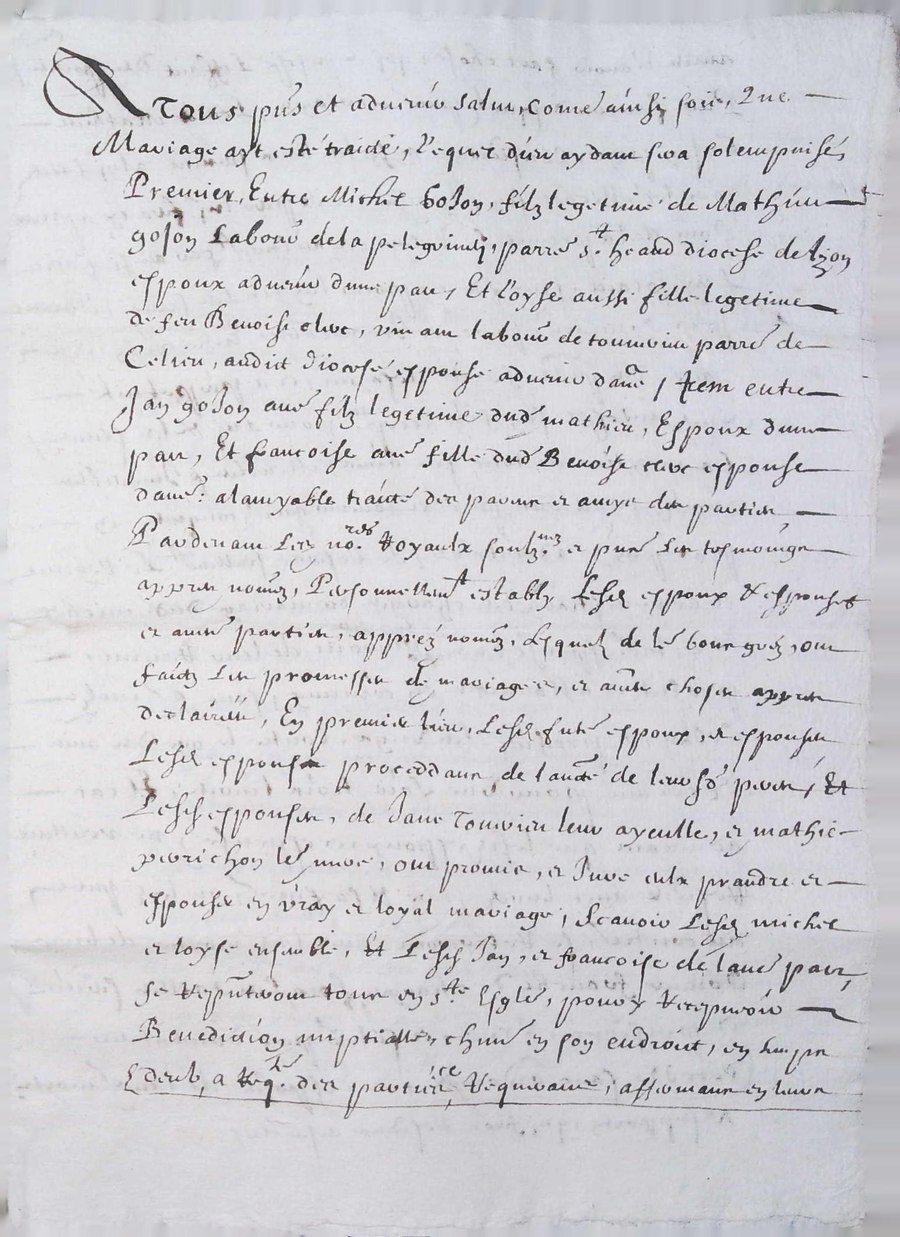 A Tous pns et advenir salut, come ainsi soit, Que
Mariage ayt esté traicté, lequel dieu aydant sera solempnisés
Premier, Entre Michel Gojon, filz legetime de Mathieu
gojon Labour de la pelegrinely, parre st. heand diocese de lyon
espoux advenir dune part, Et loyse aussi fille legetime
de feu Benoist clerc, vivant labour de tourvieu parre de
Celieu, audict diocese, espouse advenir daue, Item entre
Jan gojon aue filz legetime dud mathieu, Espoux dune
part, Et francoise aue fille dud Benoist clerc espouse
daue: alamyable traicté des parens et amys des parties,
Pardevant Les nores Royaulx soubznez et pnce Les tesmoings
appres nomez, Personnellemt establys Lesd espoux & espouses
et autres parties, appres nomez, Lesquelz de leur bon grez, ont
faictz Les promesses de mariages, et autres choses appres
declairees, En premier lieu, Lesd futs espoux, et espouses
Lesd espoux proceddant de laucté de leursd peres, Et
Lesd espouses, de Jane Tourvieu leur ayeulle, et mathie
perichon leur mere, ont promis, et Jure eulx prandre et
espouser en vray et loyal mariage, Scavoir Lesd michel
et loyse ensemble, Et Lesd Jan, et francoise de laue part,
Se Repntront tous en ste Esglise, pour y Recepvoir
Benediction nuptialle, chun en son endroict, en temps
Et deub, a Reqte des parties, Requerant, assermant en leurs